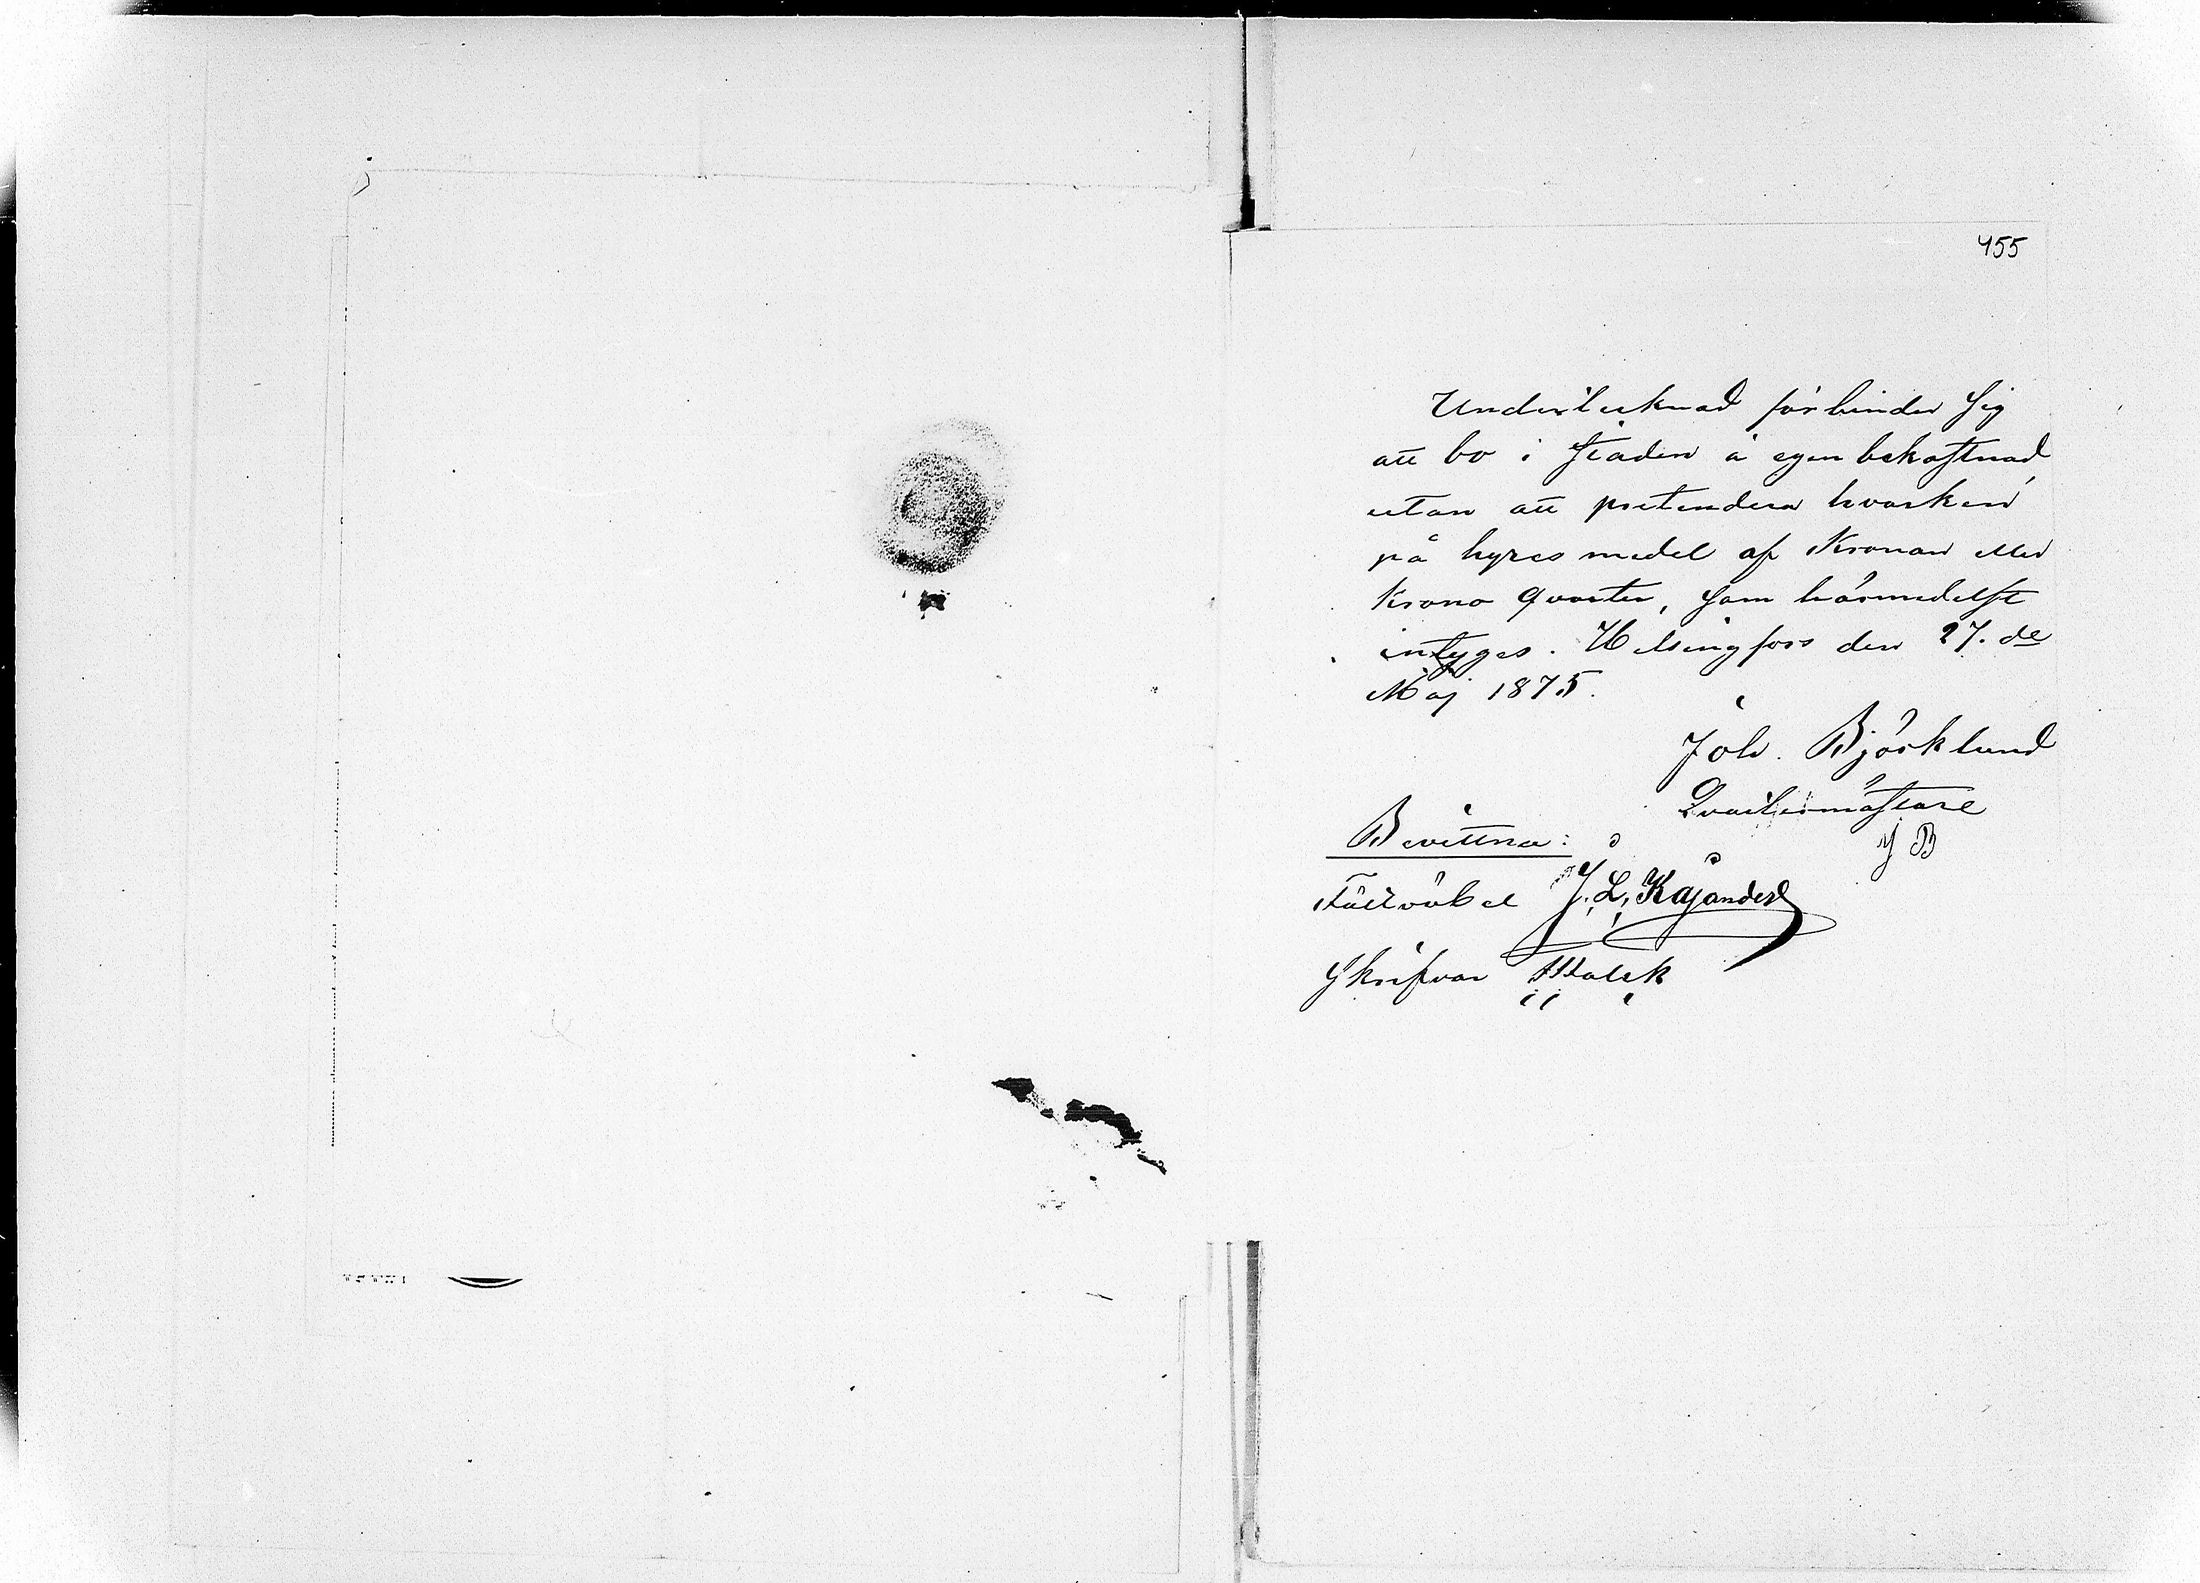 455
Undertecknad förbinder sig
att bo i staden å egen bekostnad,
utan att pretendera hvarken
på hyres medel af Kronan eller
Krono qvarter, som härmedelst
intyges. Helsingfors den 27.de
Maj 1875.
Joh. Björklund
Qvartermästare
J B
Bevittna:
Fältväbel J. L. Kajander
Skrifvar